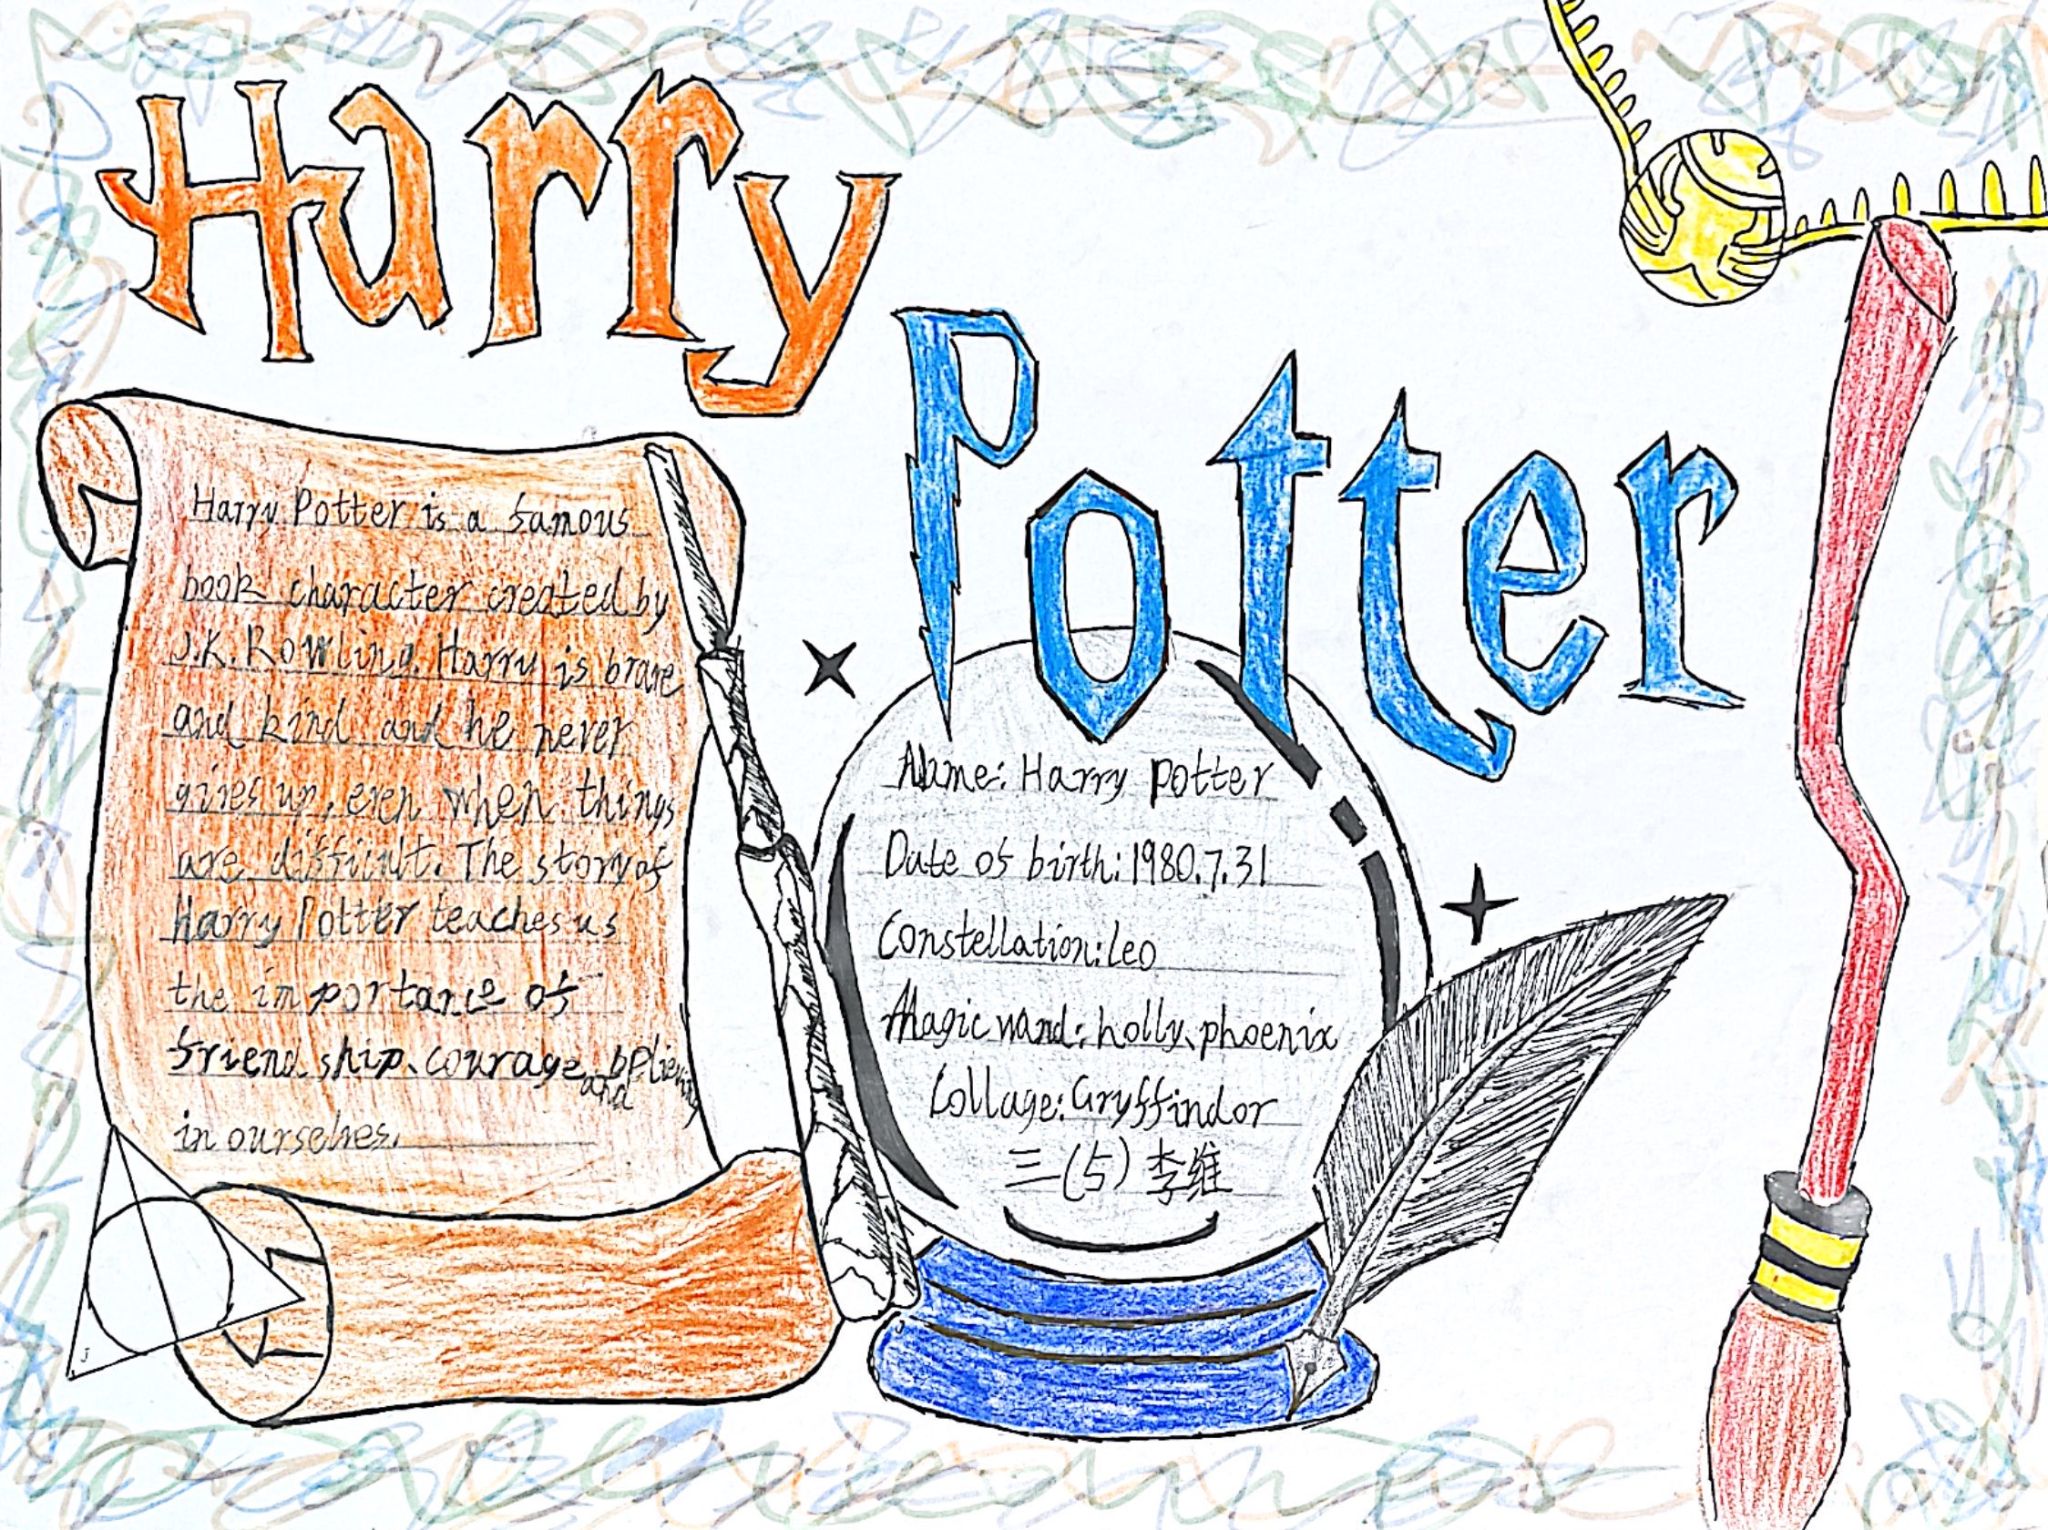 Harry
Potter
Harry Potter is a famous
book character created by
J.K. Rowling. Harry is brave
and kind and he never
gives up, even when things
are difficult. The story of
Harry Potter teaches us
the importance of
friend ship、courage and believing
in ourselves.
Name: Harry potter
Date of birth: 1980.7.31
Constellation: Leo
Magic wand: holly、phoenix
Collage: Gryffindor
三(5) 李维